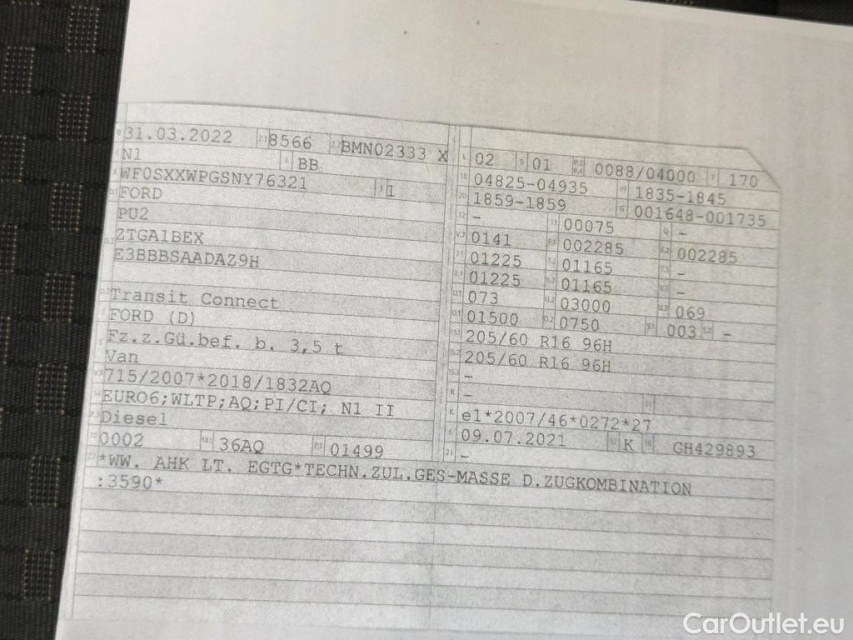 31.03.2022 8566 BMN02333 X
N1 BB
WF0SXXWPGSNY76321 1
FORD
PU2
ZTGA1BEX
E3BBBSAADAZ9H
Transit Connect
FORD (D)
Fz.z.Gü.bef. b. 3,5 t
Van
715/2007*2018/1832AQ
EURO6;WLTP;AQ;PI/CI; N1 II
Diesel
0002 36AQ 01499
02 01 0088/04000 170
04825-04935 1835-1845
1859-1859 001648-001735
- 00075 -
0141 002285 002285
01225 01165 -
01225 01165 -
073 03000 069
01500 0750 003 -
205/60 R16 96H
205/60 R16 96H
-
-
e1*2007/46*0272*27
09.07.2021 K GH429893
-
*WW. AHK LT. EGTG*TECHN.ZUL.GES-MASSE D.ZUGKOMBINATION
:3590*
CarOutlet.eu